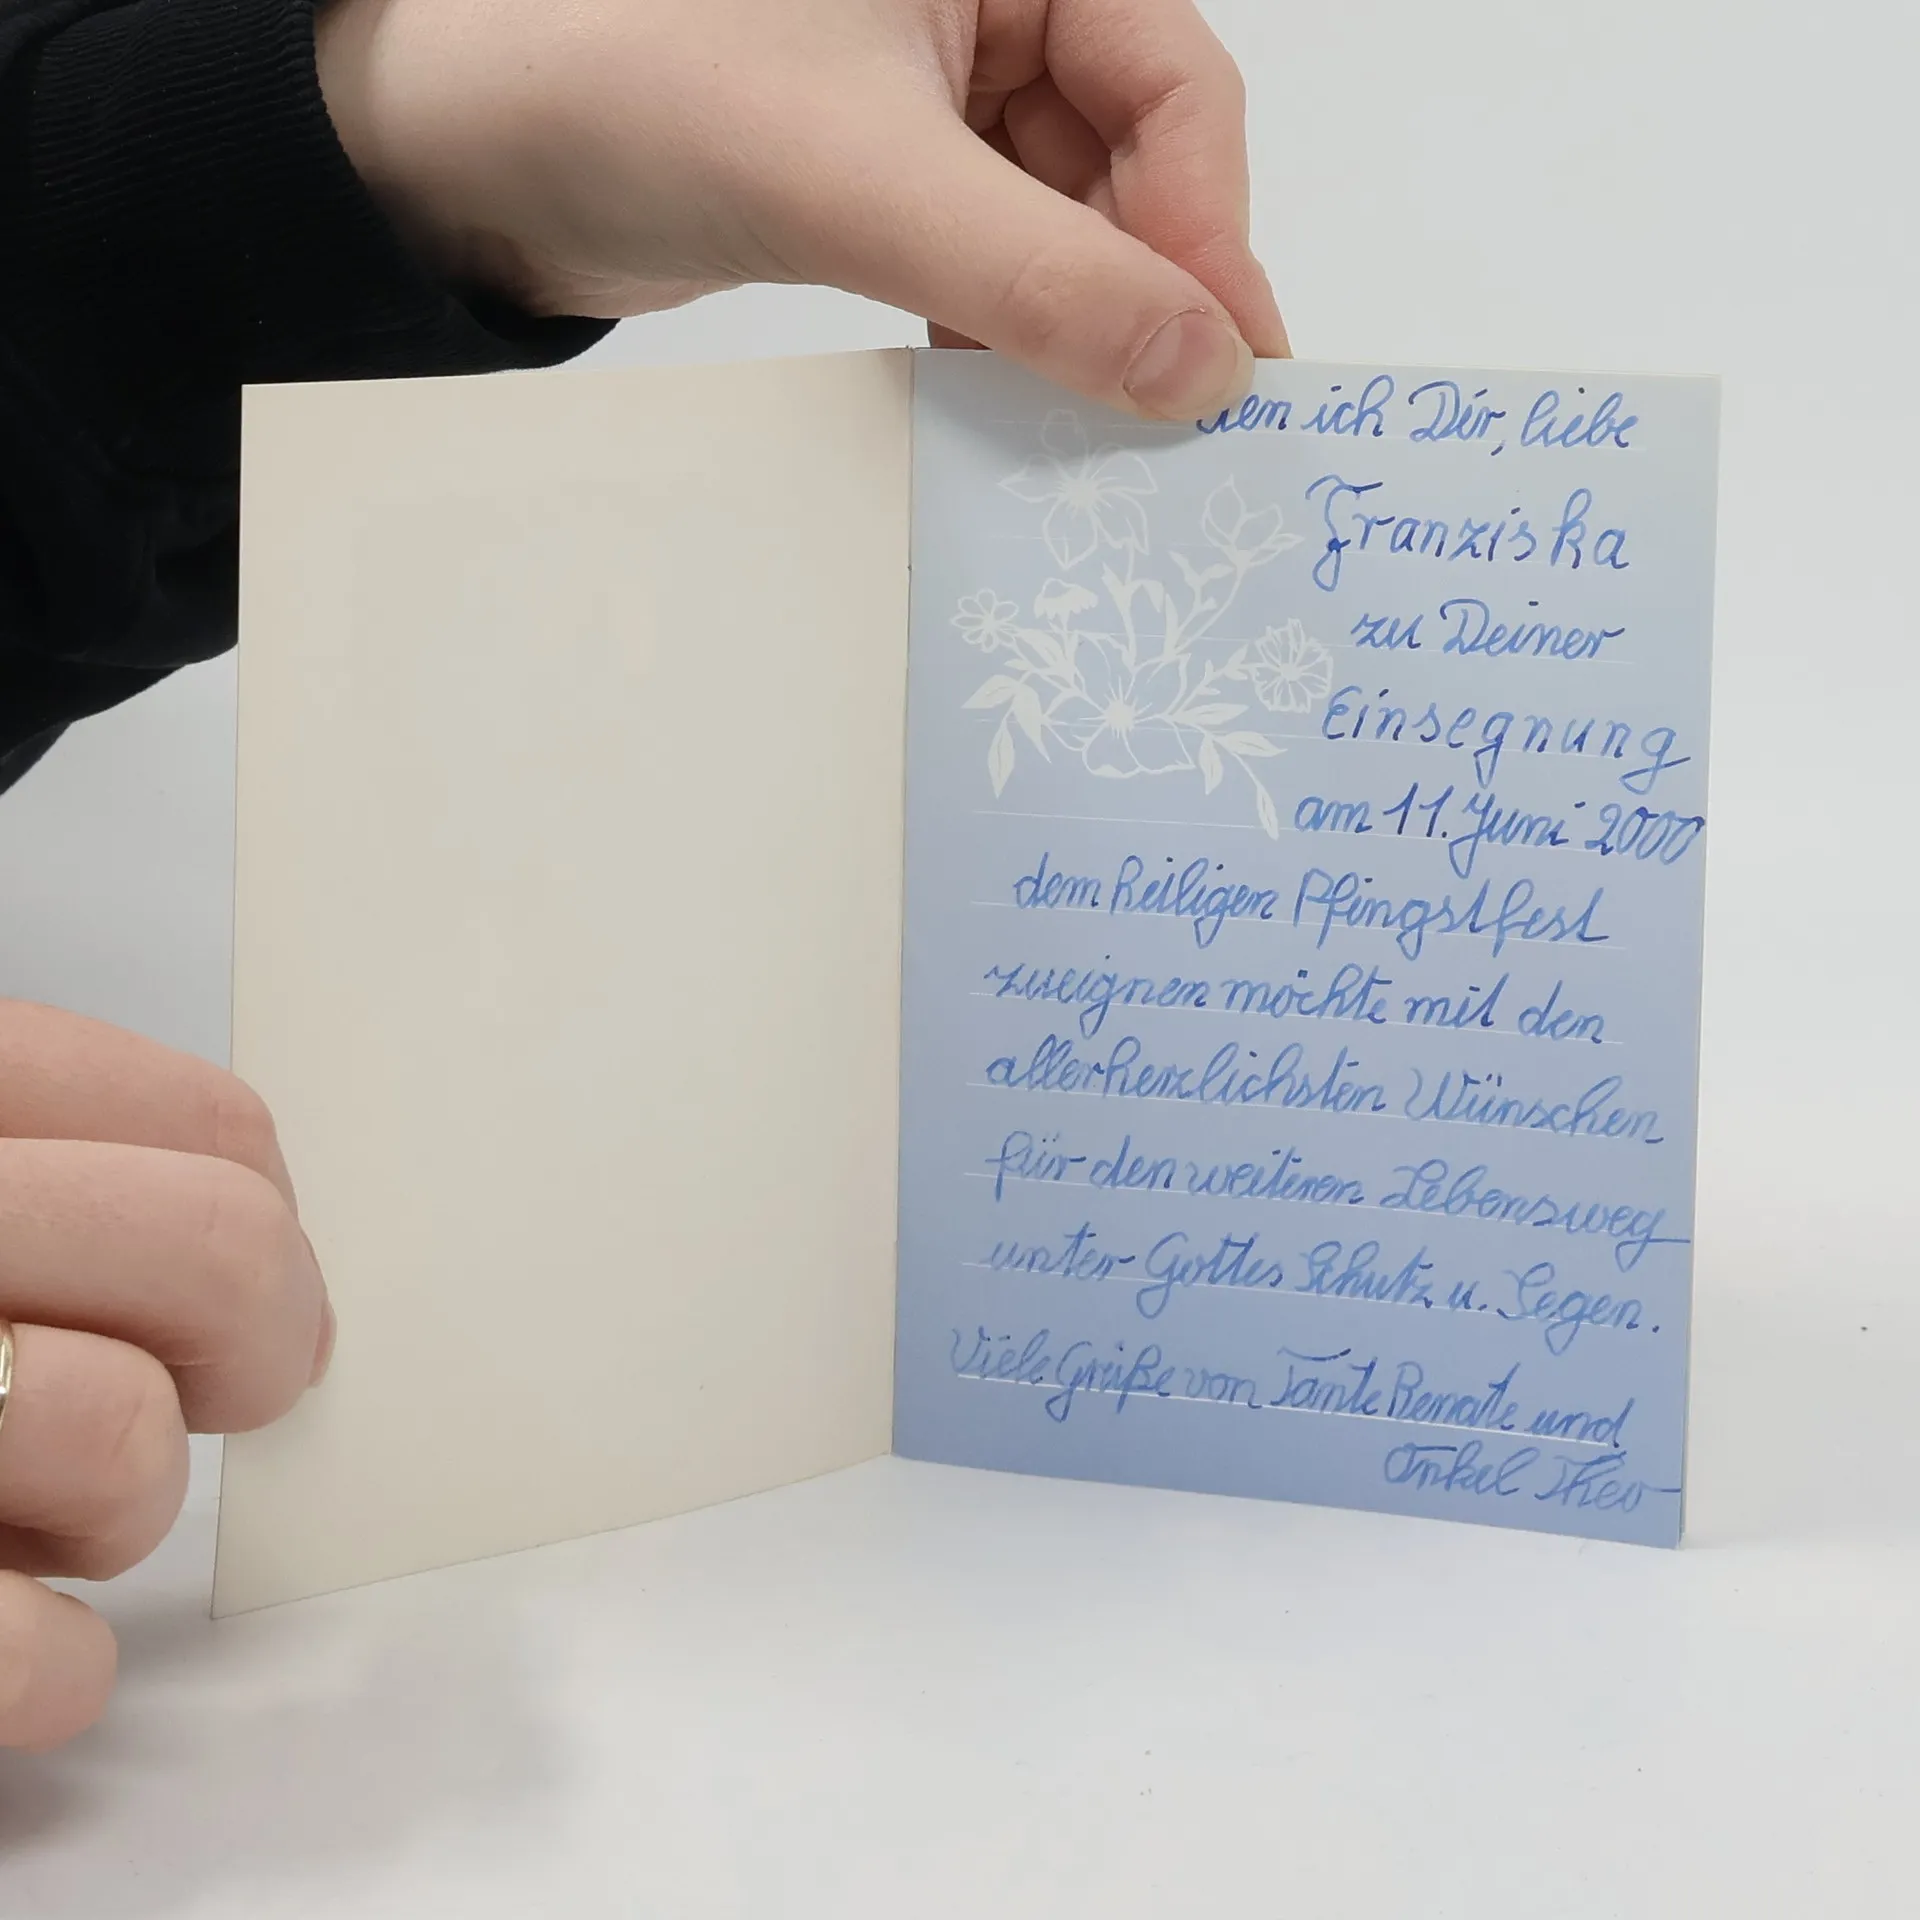 ich Dir, liebe
Franziska
zu Deiner
Einsegnung
am 11. Juni 2000
dem heiligen Pfingstfest
zueignen möchte mit den
allerherzlichsten Wünschen
für den weiteren Lebensweg
unter Gottes Schutz u. Segen.
Viele Grüße von Tante Renate und
Onkel Theo